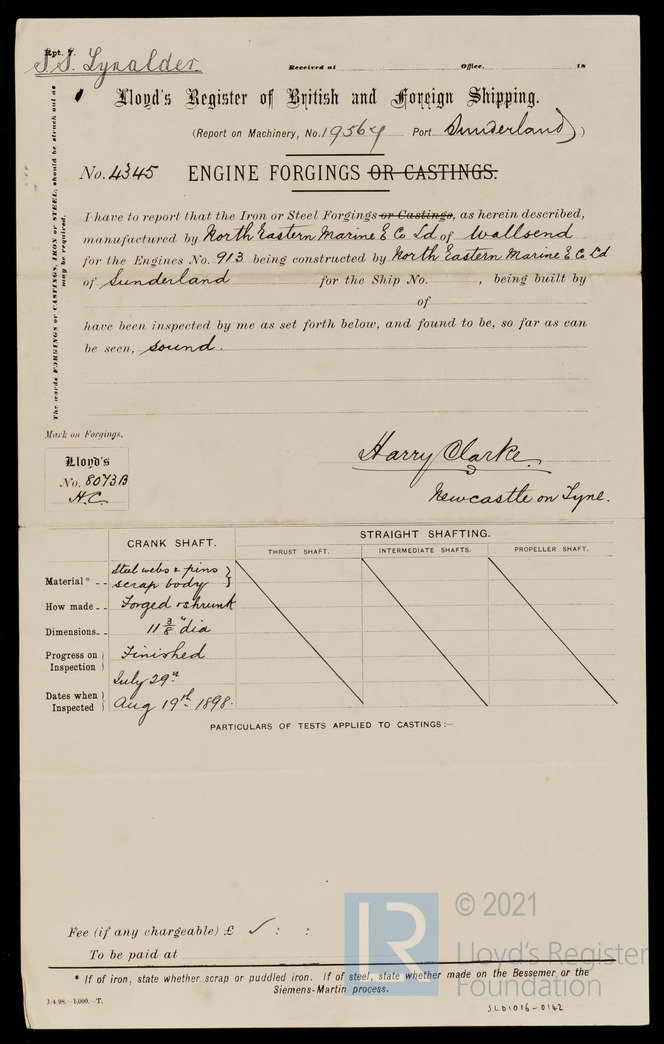 Rpt. 7.
S.S. Lynalder
Received at Office, 18
Lloyd's Register of British and Foreign Shipping.
(Report on Machinery, No. 19564 Port Sunderland)
No. 4345 ENGINE FORGINGS OR CASTINGS.
The words FORGINGS or CASTINGS, IRON or STEEL, should be struck out as may be required.
I have to report that the Iron or Steel Forgings or Castings, as herein described,
manufactured by North Eastern Marine E Co Ld of Wallsend
for the Engines No. 913 being constructed by North Eastern Marine E Co Ld
of Sunderland for the Ship No. , being built by
of
have been inspected by me as set forth below, and found to be, so far as can
be seen, sound.
Mark on Forgings.
Lloyd's
No. 8073B
H.C.
Harry Clarke.
Newcastle on Tyne.
CRANK SHAFT. STRAIGHT SHAFTING.
THRUST SHAFT. INTERMEDIATE SHAFTS. PROPELLER SHAFT.
Material* - - Steel webs & pins } scrap body
How made - - Forged & shrunk
Dimensions - - 11 3/8" dia
Progress on Inspection } Finished
Dates when Inspected } July 29th
Aug 19th 1898.
PARTICULARS OF TESTS APPLIED TO CASTINGS:—
Fee (if any chargeable) £ ✓ : :
To be paid at
* If of iron, state whether scrap or puddled iron. If of steel, state whether made on the Bessemer or the
Siemens-Martin process.
1/4/98.—1,000.—T.
LR
© 2021
Lloyd's Register
Foundation
SLD1016-0142